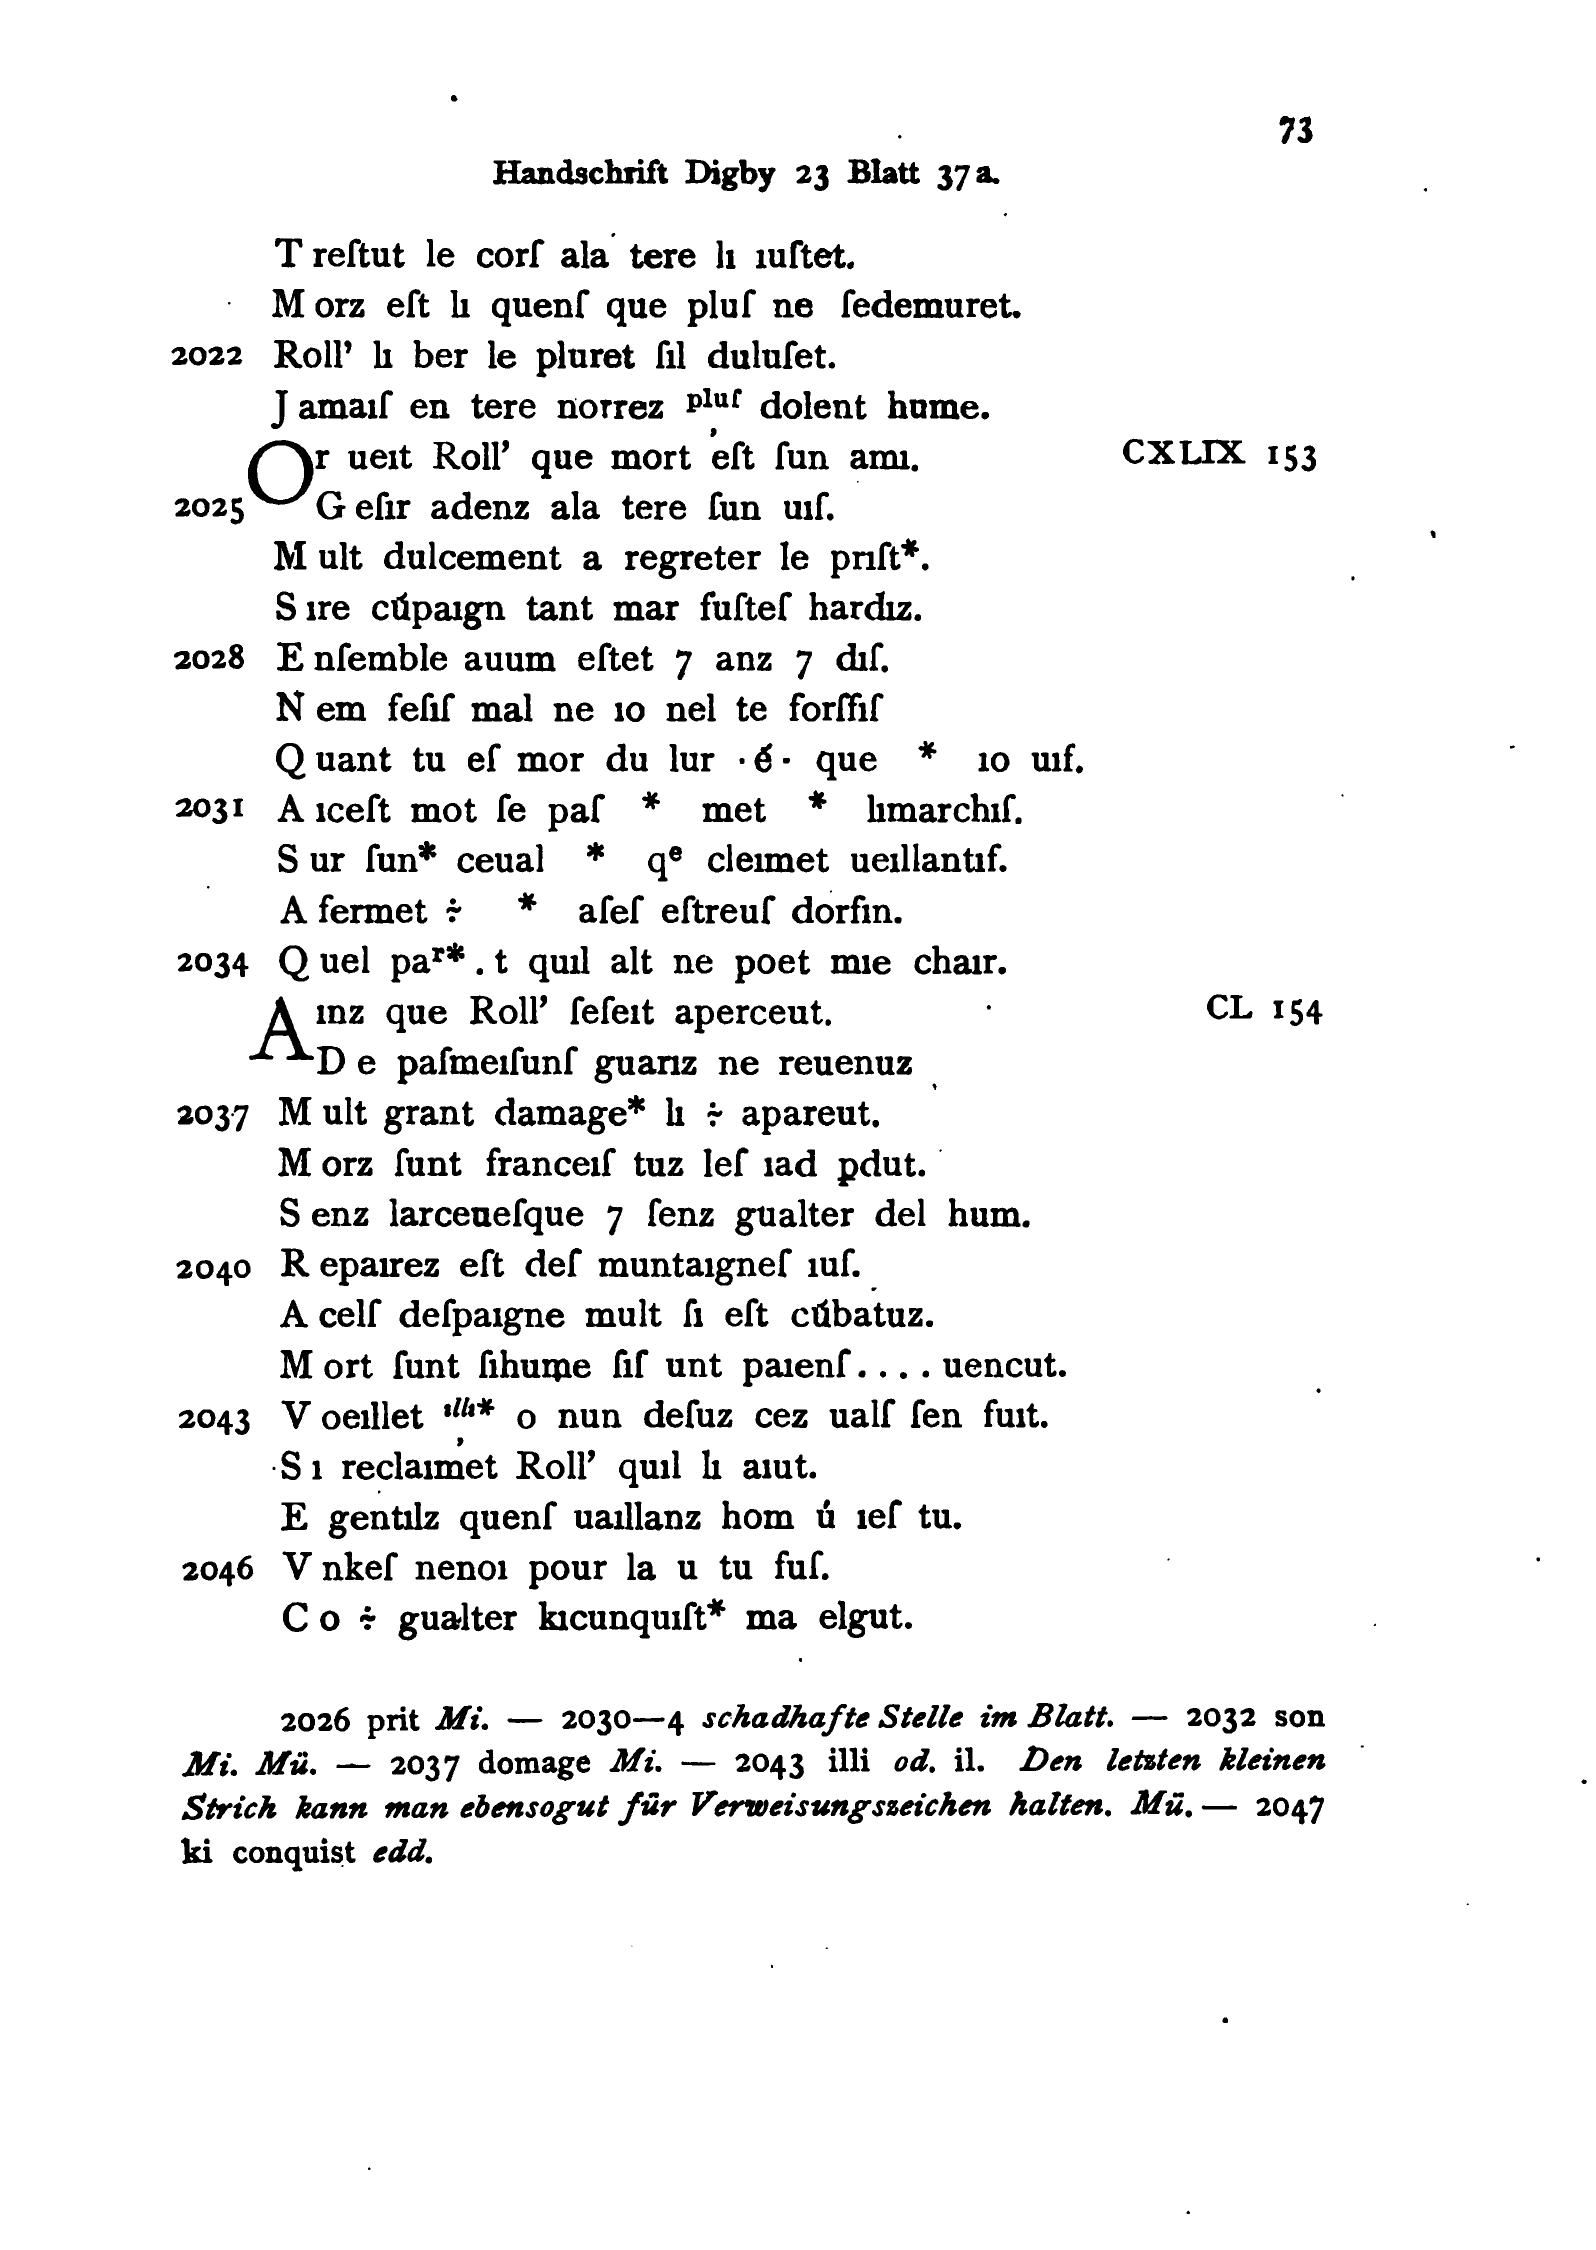 73
Handschrift Digby 23 Blatt 37a.
T reſtut le corſ ala tere lı ıuſtet.
M orz eſt lı quenſ que pluſ ne ſedemuret.
2022 Roll’ lı ber le pluret ſil duluſet.
J amaıſ en tere norrez pluſ dolent hume.
Or ueıt Roll’ que mort ’eſt ſun amı. CXLIX 153
2025 G eſır adenz ala tere ſun uıſ.
M ult dulcement a regreter le prıſt*.
S ıre cűpaıgn tant mar fuſteſ hardız.
2028 E nſemble auum eſtet 7 anz 7 dıſ.
N em feſıſ mal ne ıo nel te forſfıſ
Q uant tu eſ mor du lur · é · que * ıo uıf.
2031 A ıceſt mot ſe paſ * met * lımarchıſ.
S ur ſun* ceual * qe cleımet ueıllantıf.
A fermet ÷ * aſeſ eſtreuſ dorfın.
2034 Q uel par* . t quıl alt ne poet mıe chaır.
Aınz que Roll’ ſeſeıt aperceut. CL 154
D e paſmeıſunſ guarız ne reuenuz
2037 M ult grant damage* lı ÷ apareut.
M orz ſunt franceıſ tuz leſ ıad pdut.
S enz larceueſque 7 ſenz gualter del hum.
2040 R epaırez eſt deſ muntaıgneſ ıuſ.
A celſ deſpaıgne mult ſı eſt cűbatuz.
M ort ſunt ſıhume ſıſ unt paıenſ . . . . uencut.
2043 V oeıllet ıllı* o nun deſuz cez ualſ ſen fuıt.
S ı reclaım’et Roll’ quıl lı aıut.
E gentılz quenſ uaıllanz hom ú ıeſ tu.
2046 V nkeſ nenoı pour la u tu fuſ.
C o ÷ gualter kıcunquıſt* ma elgut.
2026 prit Mi. — 2030—4 schadhafte Stelle im Blatt. — 2032 son
Mi. Mü. — 2037 domage Mi. — 2043 illi od. il. Den letzten kleinen
Strich kann man ebensogut für Verweisungszeichen halten. Mü. — 2047
ki conquist edd.